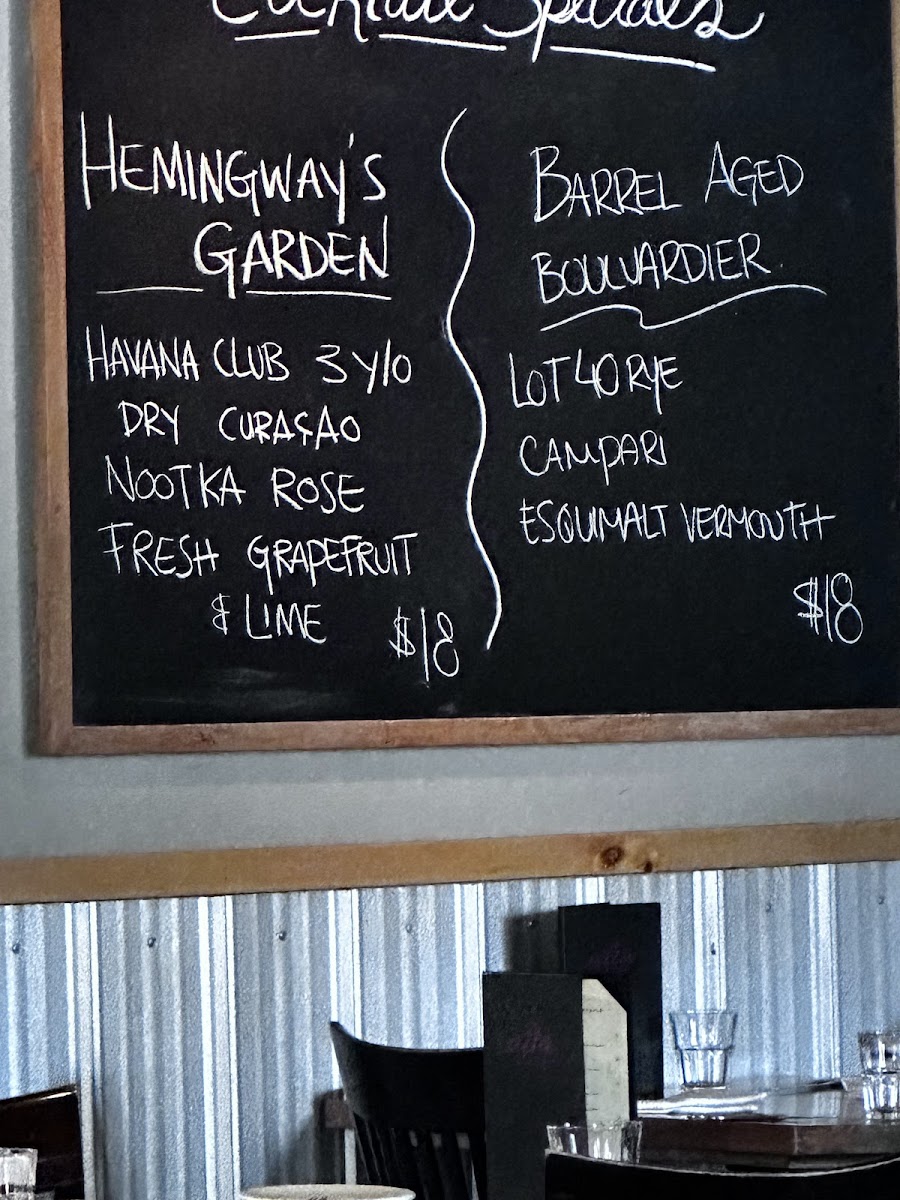 Cocktail Specials
HEMINGWAY'S
GARDEN
HAVANA CLUB 3 Y/O
DRY CURAÇAO
NOOTKA ROSE
FRESH GRAPEFRUIT
& LIME
$18
BARREL AGED
BOULVARDIER.
LOT 40 RYE
CAMPARI
ESQUIMALT VERMOUTH
$18